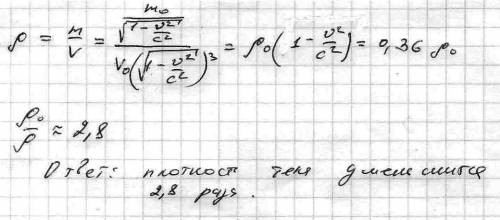 ρ = m/V = (m₀/√(1 − υ²/c²))/(V₀(√(1 − υ²/c²))³) = ρ₀(1 − υ²/c²) = 0,36 ρ₀
ρ₀/ρ ≈ 2,8
Ответ: плотност тела уменшится
2,8 раза.